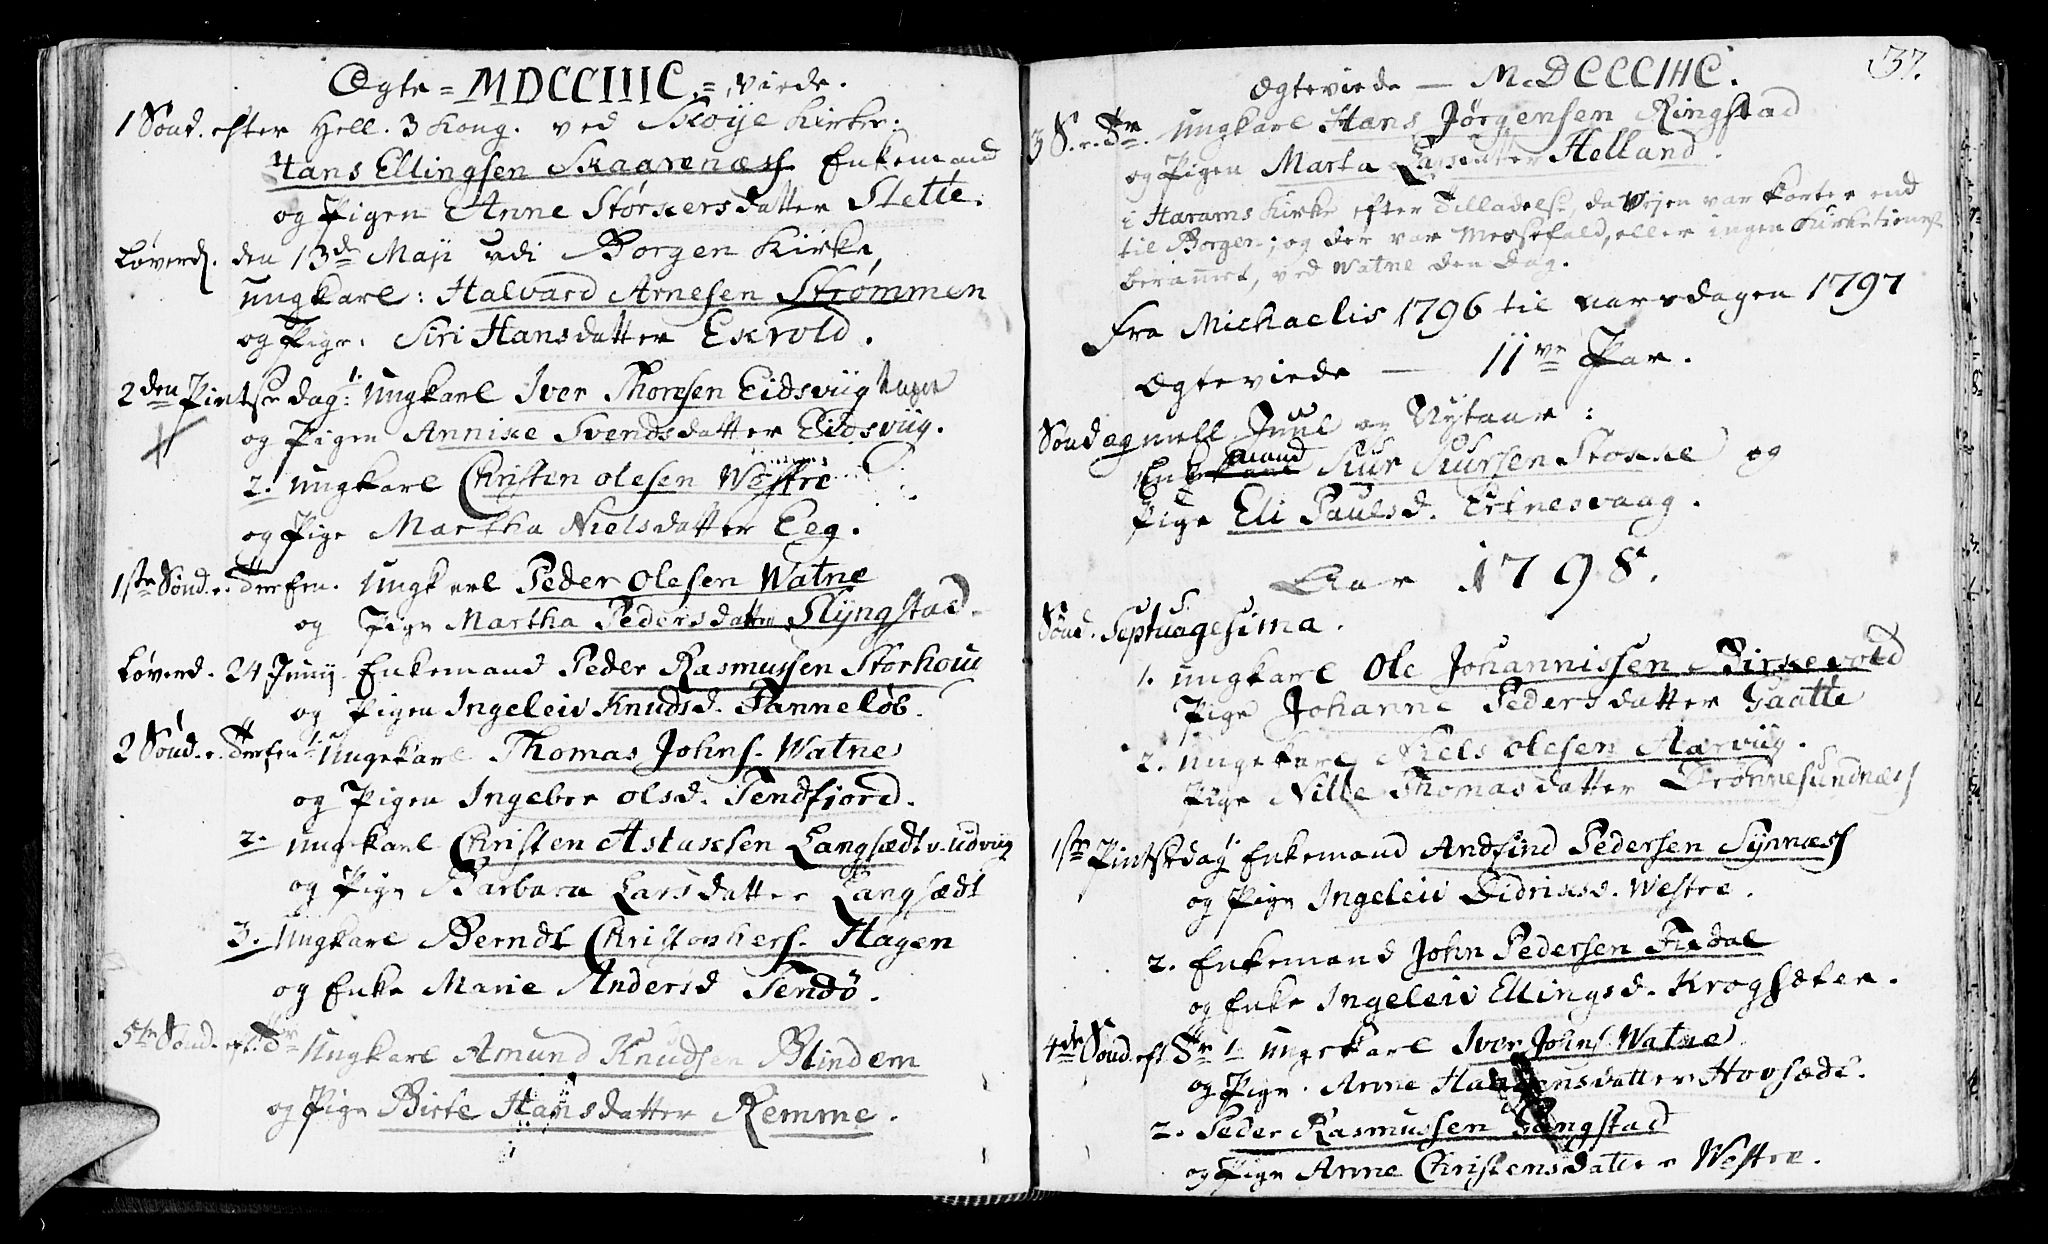 Ægte = MDCCIIIC. = viede.
1 Sönd. efter Hell. 3 Kong. ved Skoije Kirke.
Hans Ellingsen Skaarenæss Enkemand
og Pigen Anne Störkersdatter Slette.
Löverd. den 13de Maji udi Borgen Kirke,
ungkarl: Halvard Arnesen Strömmen
og Pige: Siri Hansdatter Exrold.
2den Pintsedag: 1. Ungkarl Iver Thoresen Eidsviig
og Pigen Annike Svendsdatter Eidsviig.
2. Ungkarl Christen Olesen Westre
og Pige Martha Nielsdatter Eeg.
1ste Sönd. e. Trefen. Ungkarl Peder Olesen Watne
og Pige Martha Pedersdatter Slyngstad.
Löverd. 24 Junij Enkemand Peder Rasmussen Storhoug
og Pigen Ingeleiv Knudsd. Fanneløb.
2 Sönd. e. Trefen 1. Ungekarl Thomas Johns. Watne
og Pigen Ingebor Olsd. Tendfjord.
2. Ungkarl Christen Astaksen Langsædt v. Udvig
og Pige Barbara Larsdatter Langsædt
3. Ungkarl Berndt Christophers. Hagen
og Enke Marie Andersd Tendö.
5te Sönd. eft. Tr Ungkarl Amund Knudsen Blindem
og Pige Birte Hansdatter Remme.
Ægteviede — MDCCCIIIC.
37.
3 S. e. Tr. Ungkarl Hans Jörgensen Ringstad
og Pigen Marta Larsdatter Helland.
i Harams Kirke efter Tilladelse, da Vejen var korter end
til Borgen; og der var Messefald, eller ingen Kirketieneste
berammet, ved Watne den Dag.
Fra Michaelis 1796 til aarsdagen 1797
Ægteviede — 11ve Par.
Söndag mell Juul og Nytaar:
Enkemand Siur Siursen Stokke og
Pige Eli Paulsd. Ertnesvaag.
Aar 1798.
Sönd. Septuagesima.
1. Ungkarl Ole Johannissen Birkevold
Pige Johanne Pedersdatter Gaatte
2. Ungekarl Niels Olesen Aarviig.
Pige Nille Thomasdatter Dröhnesundnæss
1ste Pintsedag 1. Enkemand Andfind Pedersen Synnæss
og Pige Ingeleiv Didriksd. Westre.
2. Enkemand John Pedersen Tildal
og Enke Ingeleiv Ellingsd. Krogsæter.
4de Sönd. eft Tr 1. Ungekarl Iver Johns. Watne
og Pige Anne Hansdatter Hovsædt.
2. Peder Rasmussen Gangstad
og Pige Anne Christensdatter Westre.